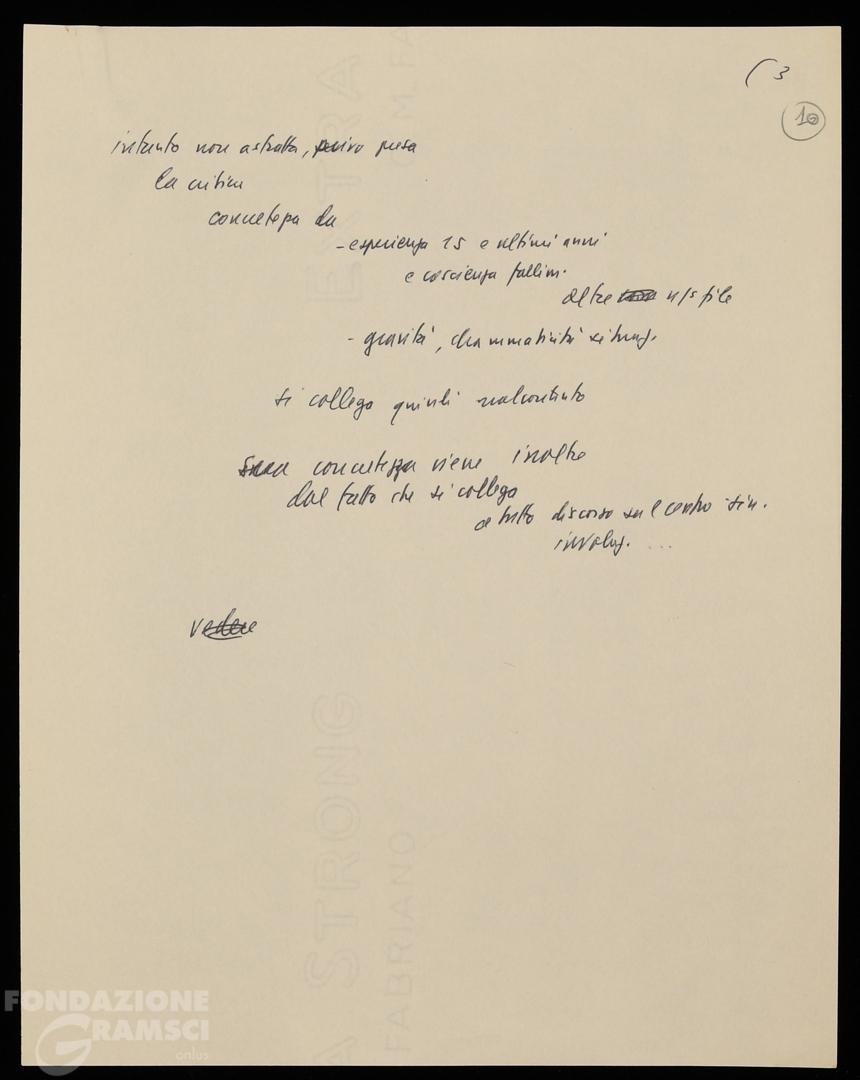 ( 3
10
intanto non astratta, presa
la critica
concretezza da
- esperienza 15 e ultimi anni
e coscienza fallim.
altre n/s file
- gravità, drammaticità situaz.
si collega quindi malcontento
sua concretezza viene inoltre
dal fatto che si collega
a tutto discorso sul centro sin.
involuz. ...
vedere
EXTRA STRONG
FABRIANO
FONDAZIONE
GRAMSCI
onlus